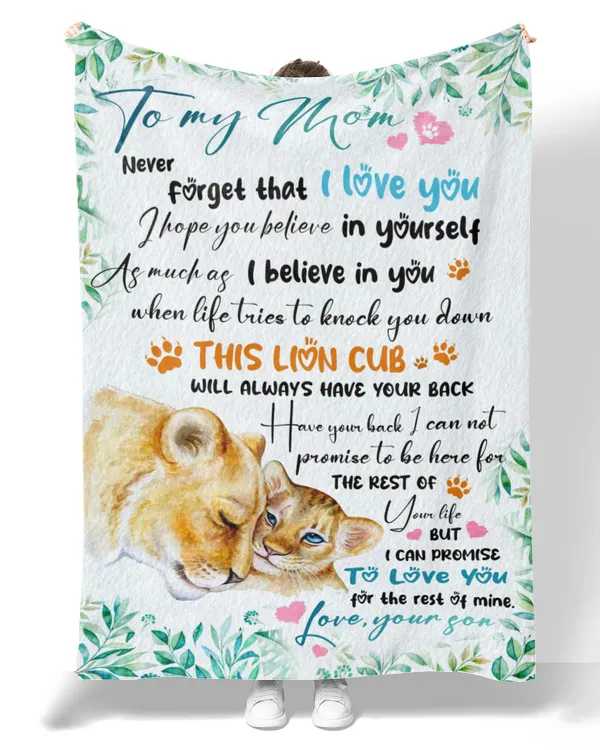 To my Mom
Never
forget that I love you
I hope you believe in yourself
As much as I believe in you
when life tries to knock you down
THIS LION CUB
WILL ALWAYS HAVE YOUR BACK
Have your back I can not
promise to be here for
THE REST OF
Your life
BUT
I CAN PROMISE
TO LOVE YOU
for the rest of mine.
Love, your son